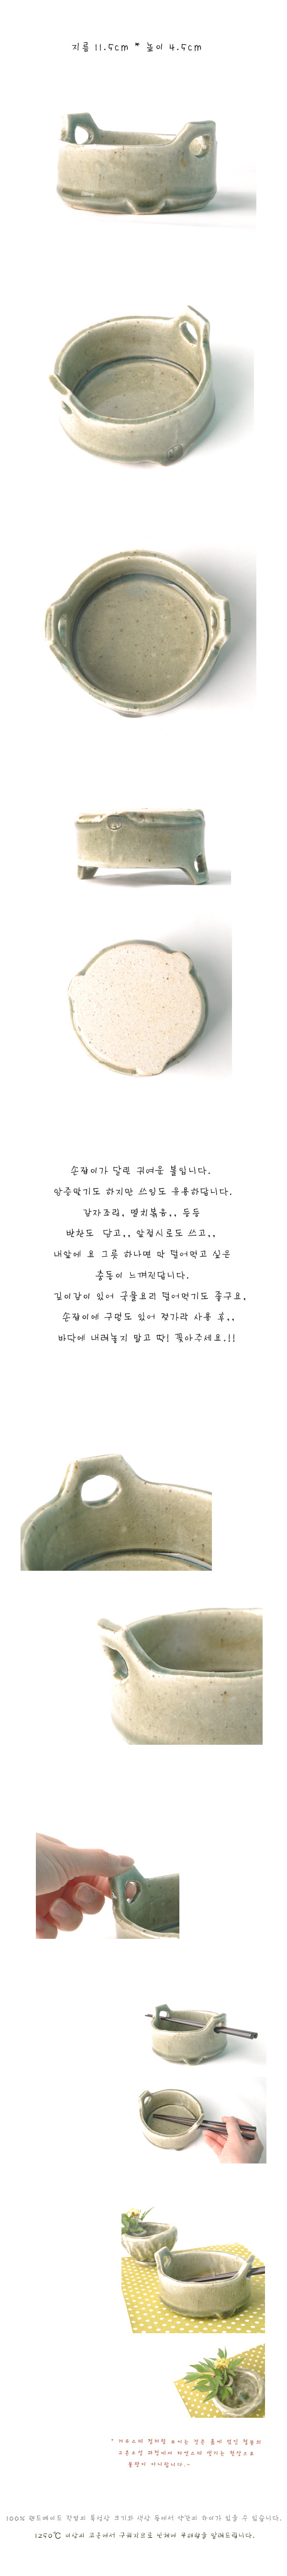 지름 11.5cm * 높이 4.5cm
손잡이가 달린 귀여운 볼입니다.
앙증맞기도 하지만 쓰임도 유용하답니다.
감자조림, 멸치볶음,, 등등
반찬도 담고,, 앞접시로도 쓰고,,
내앞에 요 그릇 하나면 막 덜어먹고 싶은
충동이 느껴진답니다.
깊이감이 있어 국물요리 덜어먹기도 좋구요,
손잡이에 구멍도 있어 젓가락 사용 후,,
바닥에 내려놓지 말고 딱! 꽂아주세요.!!
보이는 것은 흙에 섞인 철분이
소성 과정에서 자연스레 생기는 현상으로
불량이 아니랍니다.~
100% 핸드메이드 작업의 특성상 크기와 색상 등에서 약간의 차이가 있을 수 있습니다.
1250℃ 이상의 고온에서 구워지므로 인체에 무해함을 알려드립니다.